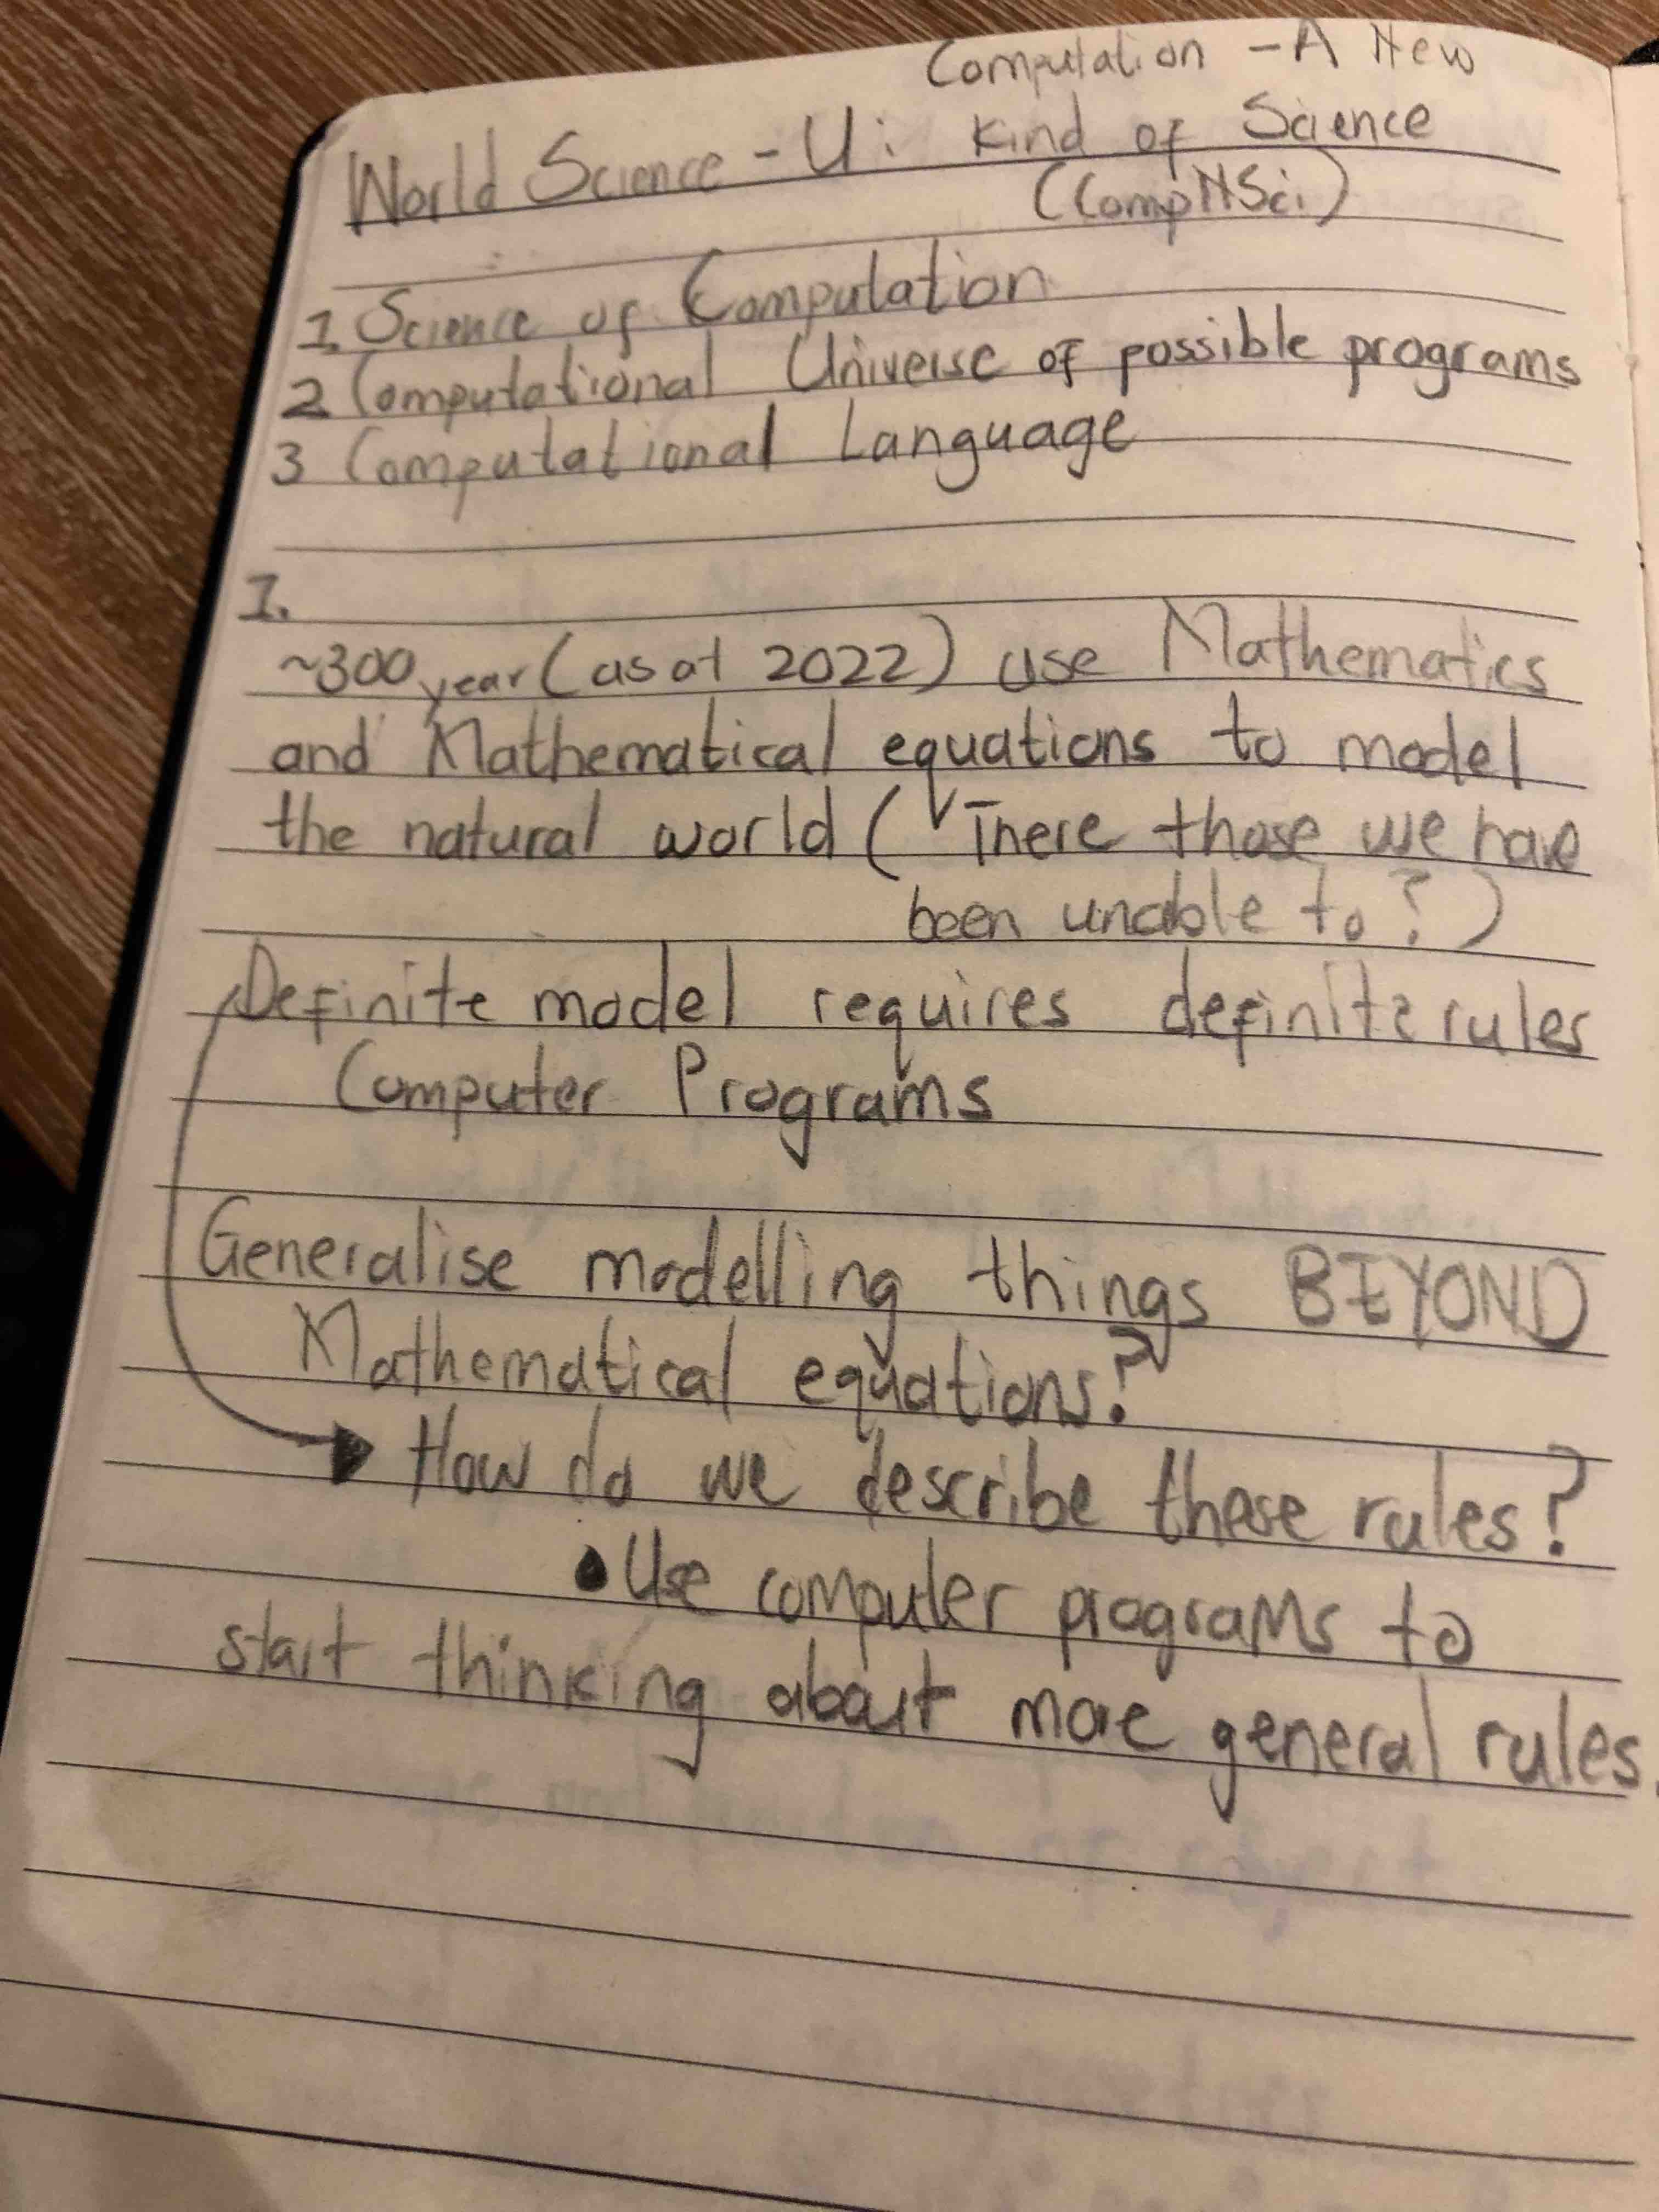 Computation - A New
World Science - U: Kind of Science
(CompNSci)
1. Science of Computation
2 Computational Universe of possible programs
3 Computational Language
1.
~300 year (as at 2022) use Mathematics
and Mathematical equations to model
the natural world ( There those we have
been unable to?)
Definite model requires definite rules
Computer Programs
Generalise modelling things BEYOND
Mathematical equations?
How do we describe these rules?
• Use computer programs to
start thinking about more general rules.